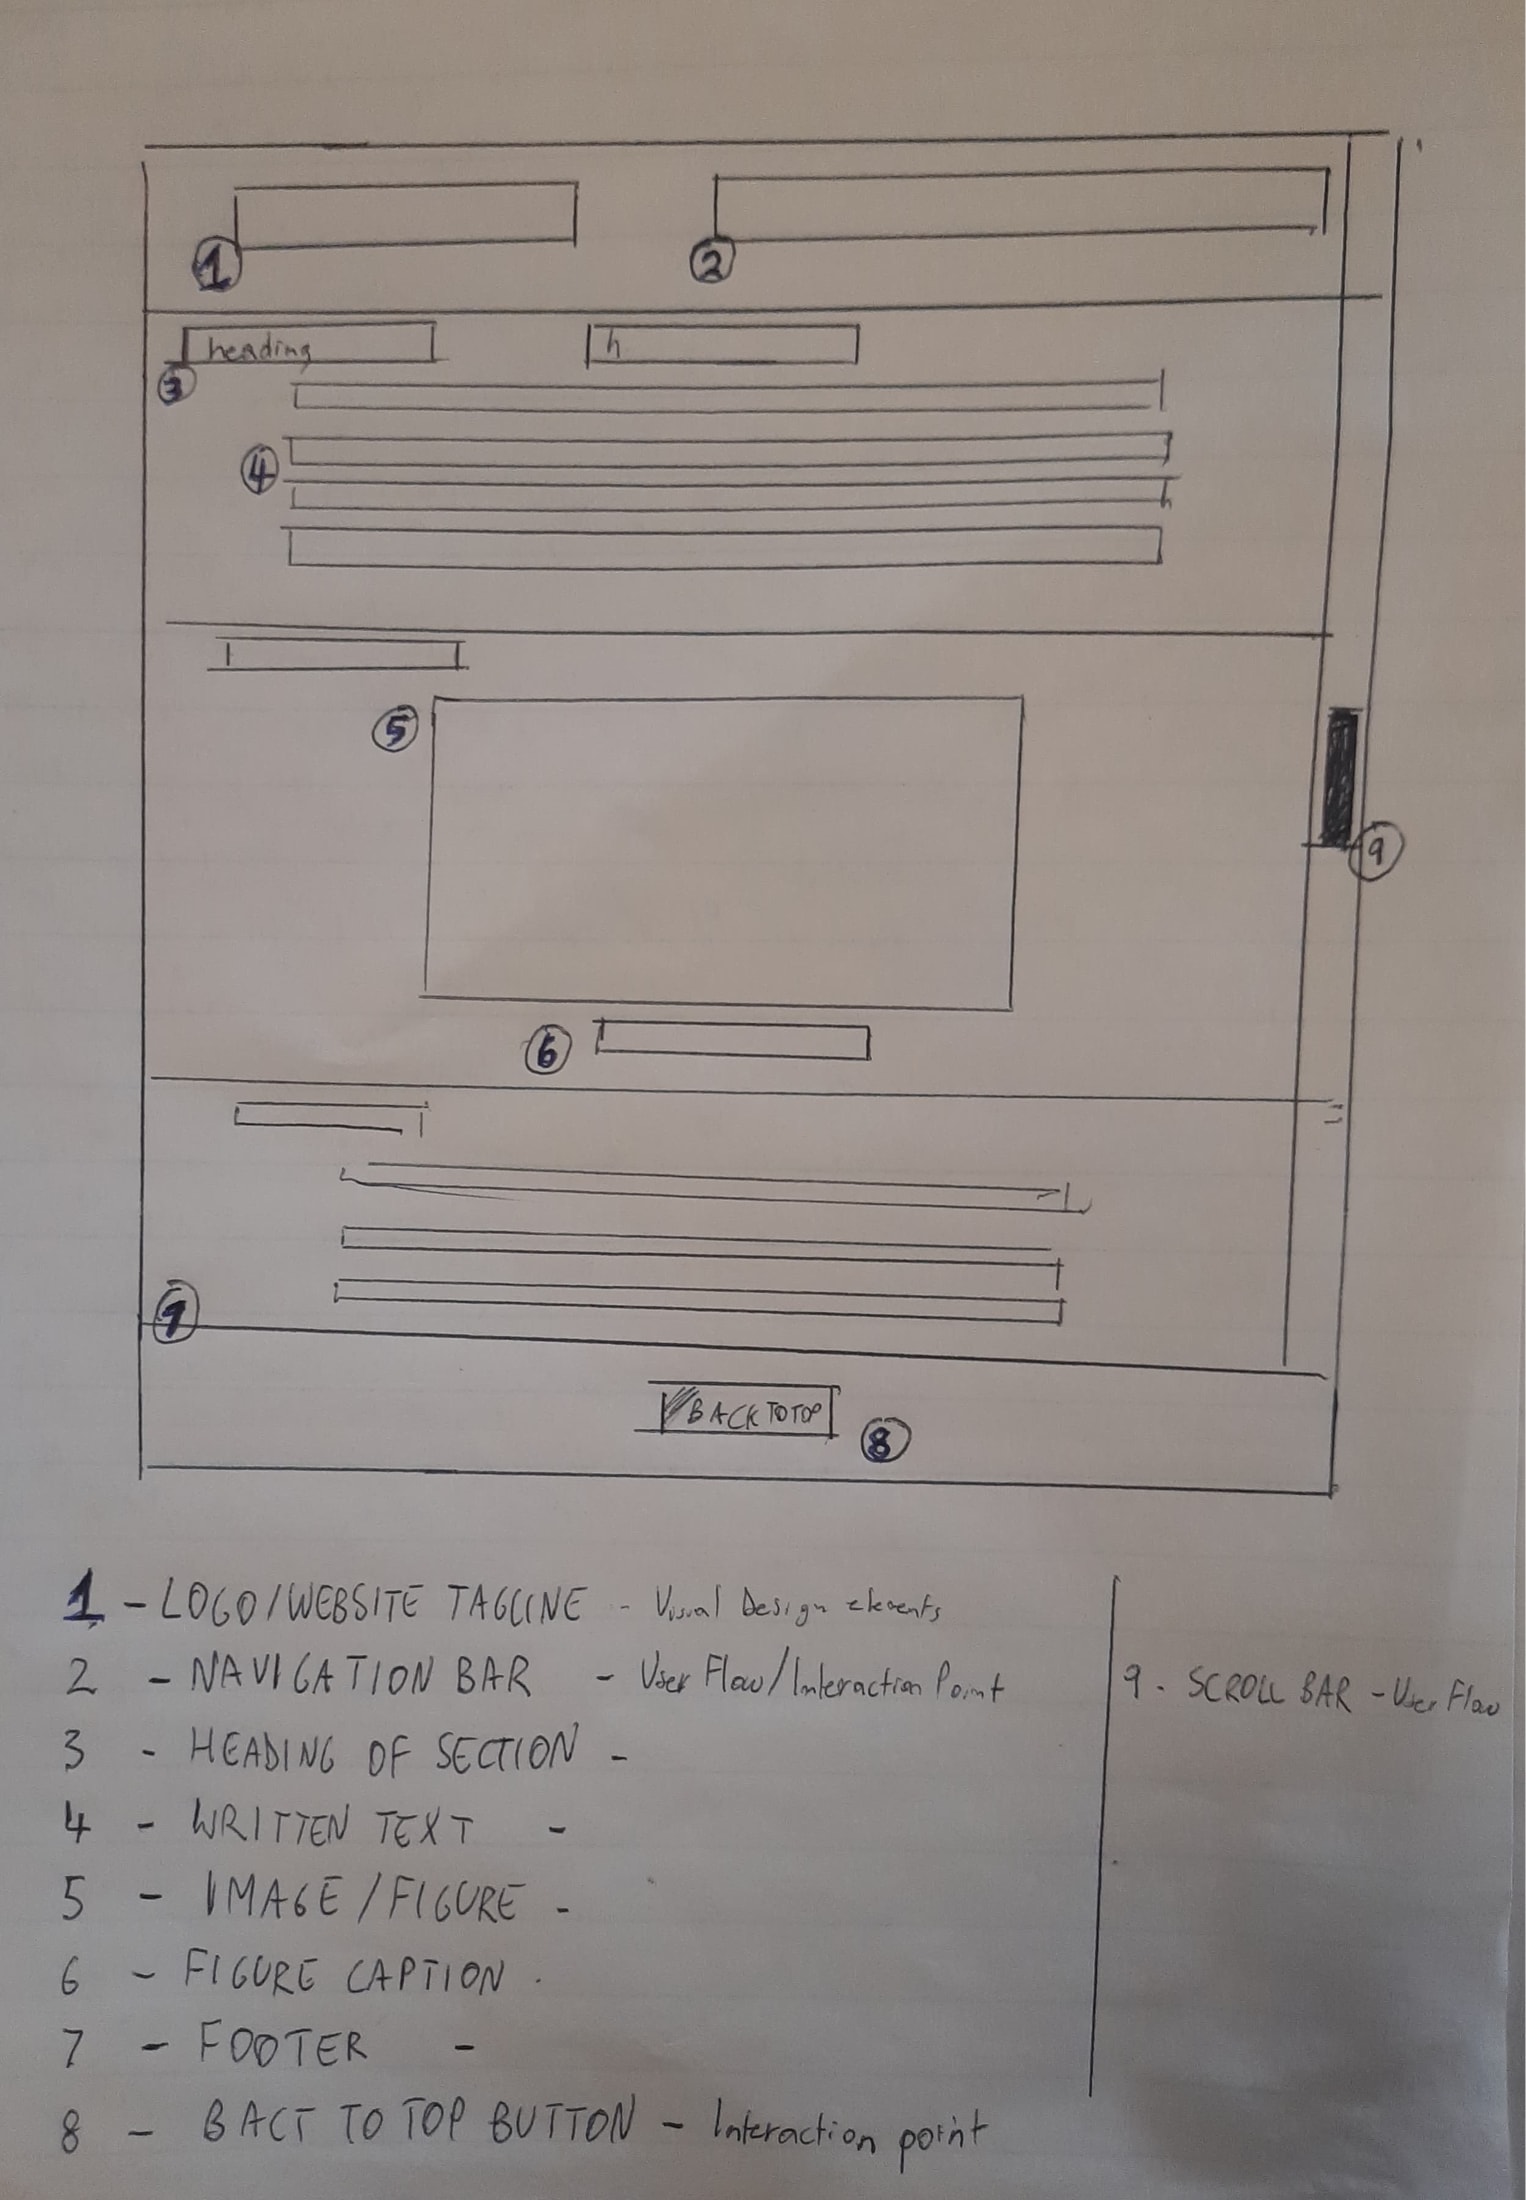 1
2
heading
h
3
4
5
9
6
7
BACK TO TOP
8
1 - LOGO/WEBSITE TAGLINE - Visual Design elements
2 - NAVIGATION BAR - User Flow/Interaction Point
9. SCROLL BAR - User Flow
3 - HEADING OF SECTION -
4 - WRITTEN TEXT -
5 - IMAGE/FIGURE -
6 - FIGURE CAPTION .
7 - FOOTER -
8 - BACT TO TOP BUTTON - Interaction point